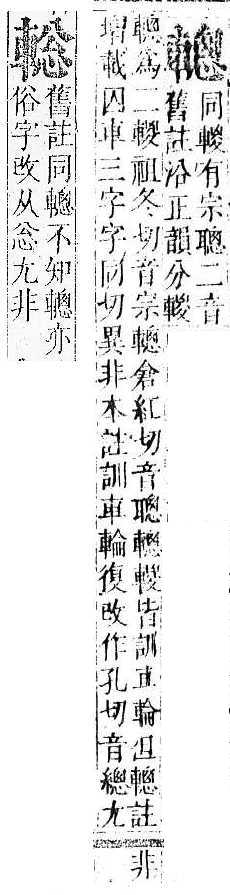 轗
同䡯有宗聰二音
舊註沿正韻分䡯
轗爲二䡯祖冬切音宗轗倉紅切音聰轗䡯皆訓車輪但轗註
增載囚車三字字同切異非本註訓車輪復改作孔切音總尤
非
䡯
舊註同轗不知轗亦
俗字改从怱尤非